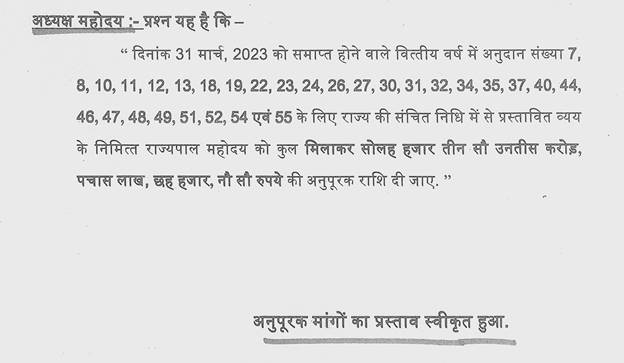 अध्यक्ष महोदय :- प्रश्न यह है कि –
“ दिनांक 31 मार्च, 2023 को समाप्त होने वाले वित्तीय वर्ष में अनुदान संख्या 7,
8, 10, 11, 12, 13, 18, 19, 22, 23, 24, 26, 27, 30, 31, 32, 34, 35, 37, 40, 44,
46, 47, 48, 49, 51, 52, 54 एवं 55 के लिए राज्य की संचित निधि में से प्रस्तावित व्यय
के निमित्त राज्यपाल महोदय को कुल मिलाकर सोलह हजार तीन सौ उनतीस करोड़,
पचास लाख, छह हजार, नौ सौ रुपये की अनुपूरक राशि दी जाए. ”
अनुपूरक मांगों का प्रस्ताव स्वीकृत हुआ.